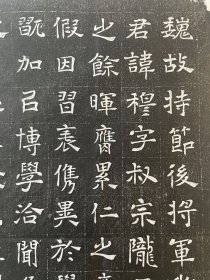 魏故持節後將軍
君諱穆字叔宗隴
之餘暉膺累仁之
假因習儁異於
翫加㠯博學洽聞